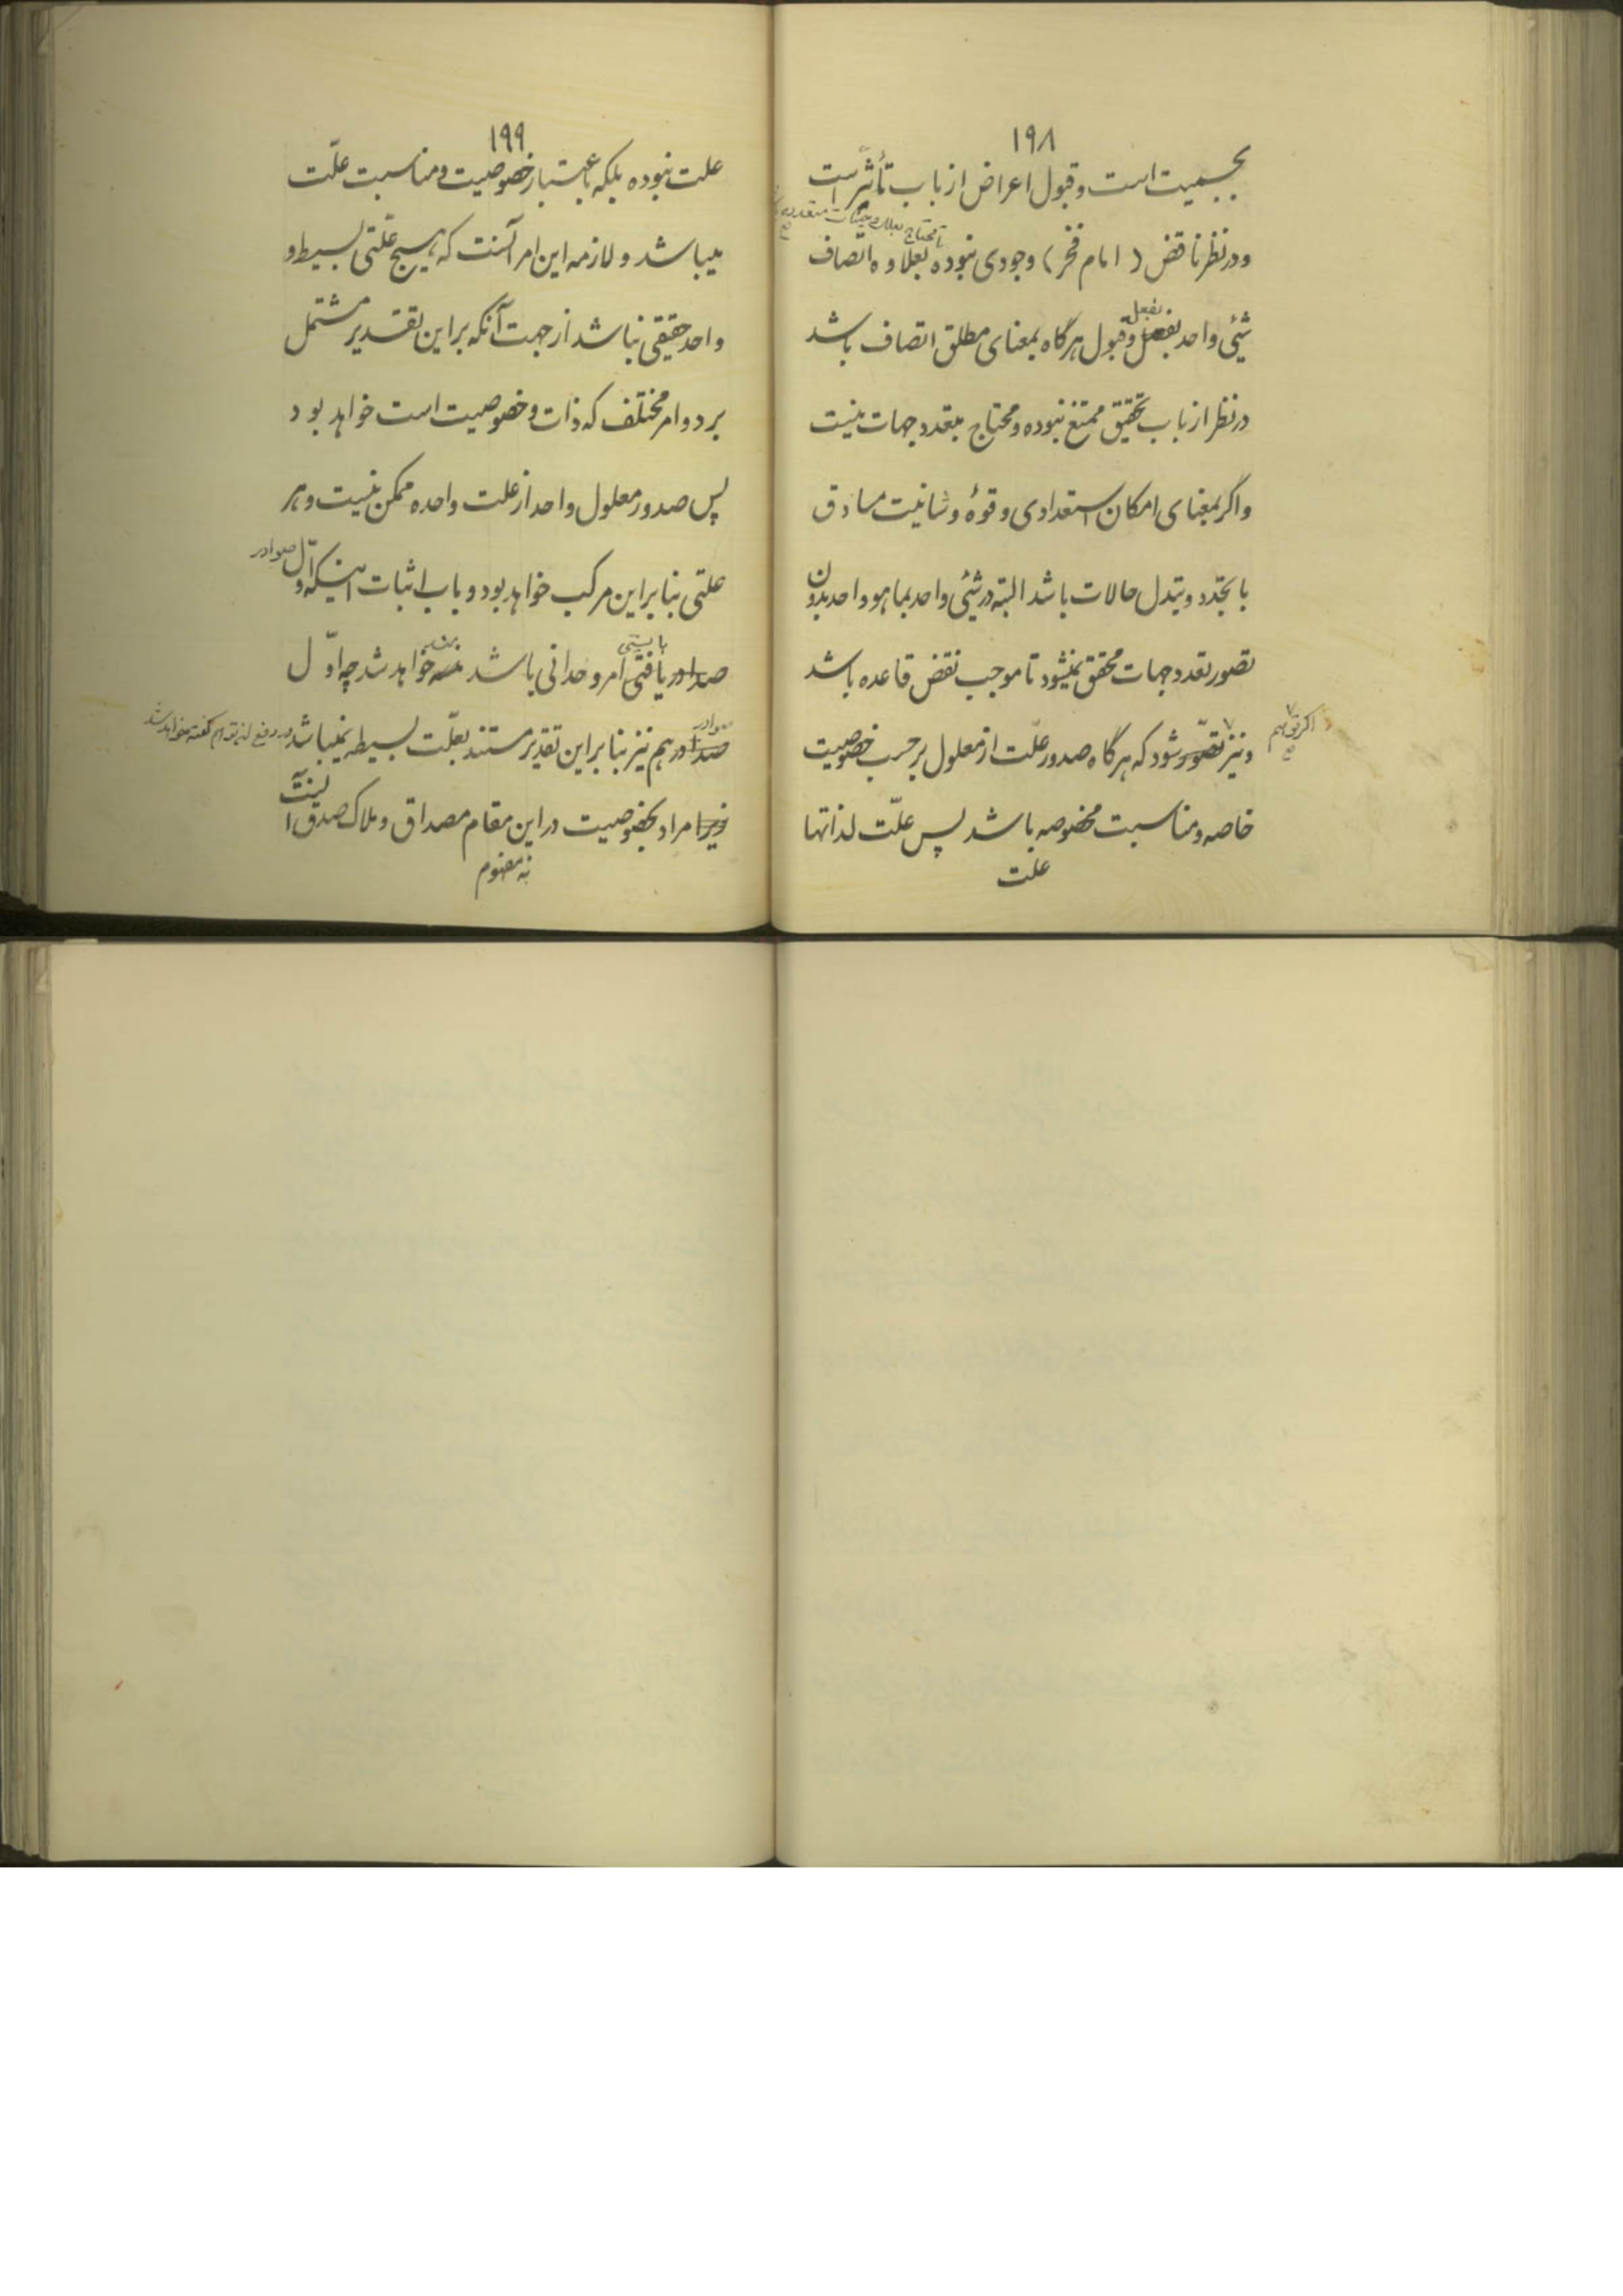 ۱۹۸
بجسمیت است و قبول اعراض از باب تأثر است
تا محتاج بعلت و جهات متعدده
و در نظر ناقض (امام فخر) وجودی نبوده بعلاوه اتصاف
بفعل
شیئی واحد بفصل و قبول هرگاه بمعنای مطلق اتصاف باشد
در نظر ارباب تحقیق ممتنع نبوده و محتاج بتعدد جهات نیست
و اگر بمعنای امکان استعدادی و قوهٔ و شانیت مساوق
با تجدد و تبدل حالات باشد البته در شیئی واحد بما هو واحد بدون
تصور تعدد جهات محقق نمیشود تا موجب نقض قاعده باشد
و نیز تصور شود که هرگاه صدور علّت از معلول برحسب خصوصیت
خاصه و مناسبت مخصوصه باشد پس علّت لذاتها
علت
۱۹۹
علت نبوده بلکه باعتبار خصوصیت و مناسبت علّت
میباشد و لازمه این امر آنست که هیچ علّتی بسیط و
واحد حقیقی نباشد از جهت آنکه بر این تقدیر مشتمل
بر دو امر مختلف که ذات و خصوصیت است خواهد بود
پس صدور معلول واحد از علت واحده ممکن نیست و هر
علتی بنابراین مرکب خواهد بود و باب اثبات اینکه اوّل صوادر
بایستی
صدادر یافتی امر وحدانی باشد خواهد شد چه اوّل
صوادر
صدادر هم نیز بنابراین تقدیر مستند بعلّت بسیطه نمیباشد در دفع این توهم گفته خواهد شد
زیرا مراد بخصوصیت در این مقام مصداق و ملاک صدق اینست
نه مفهوم